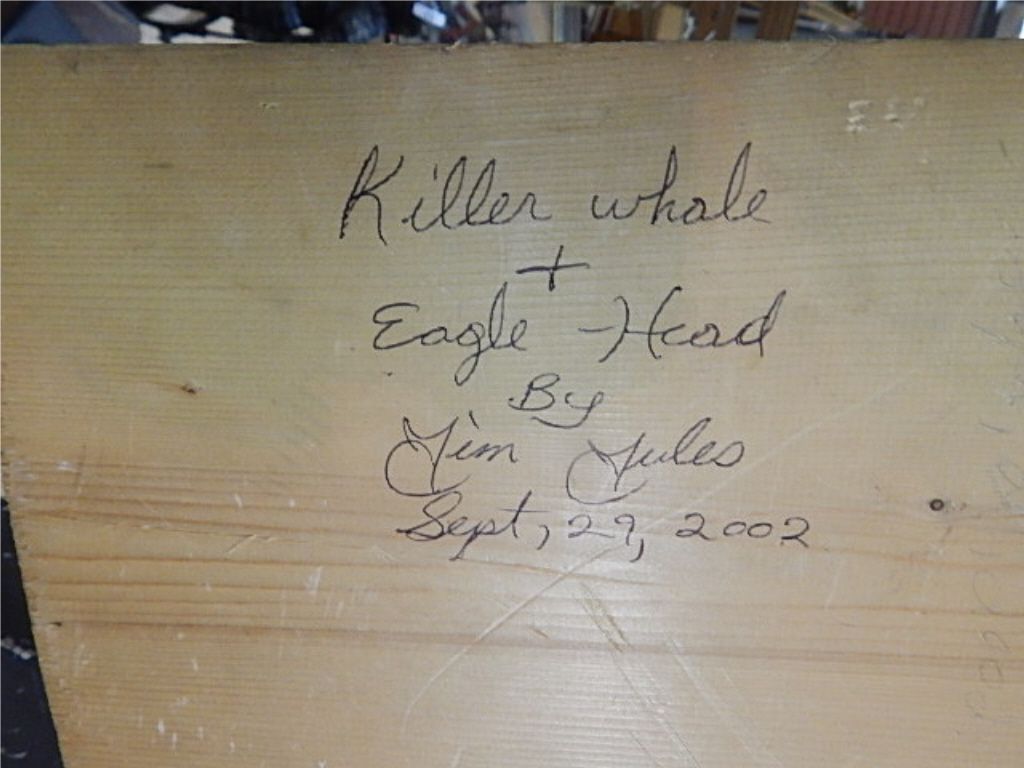 Killer whale
+
Eagle-Head
By
Jim Jules
Sept, 29, 2002